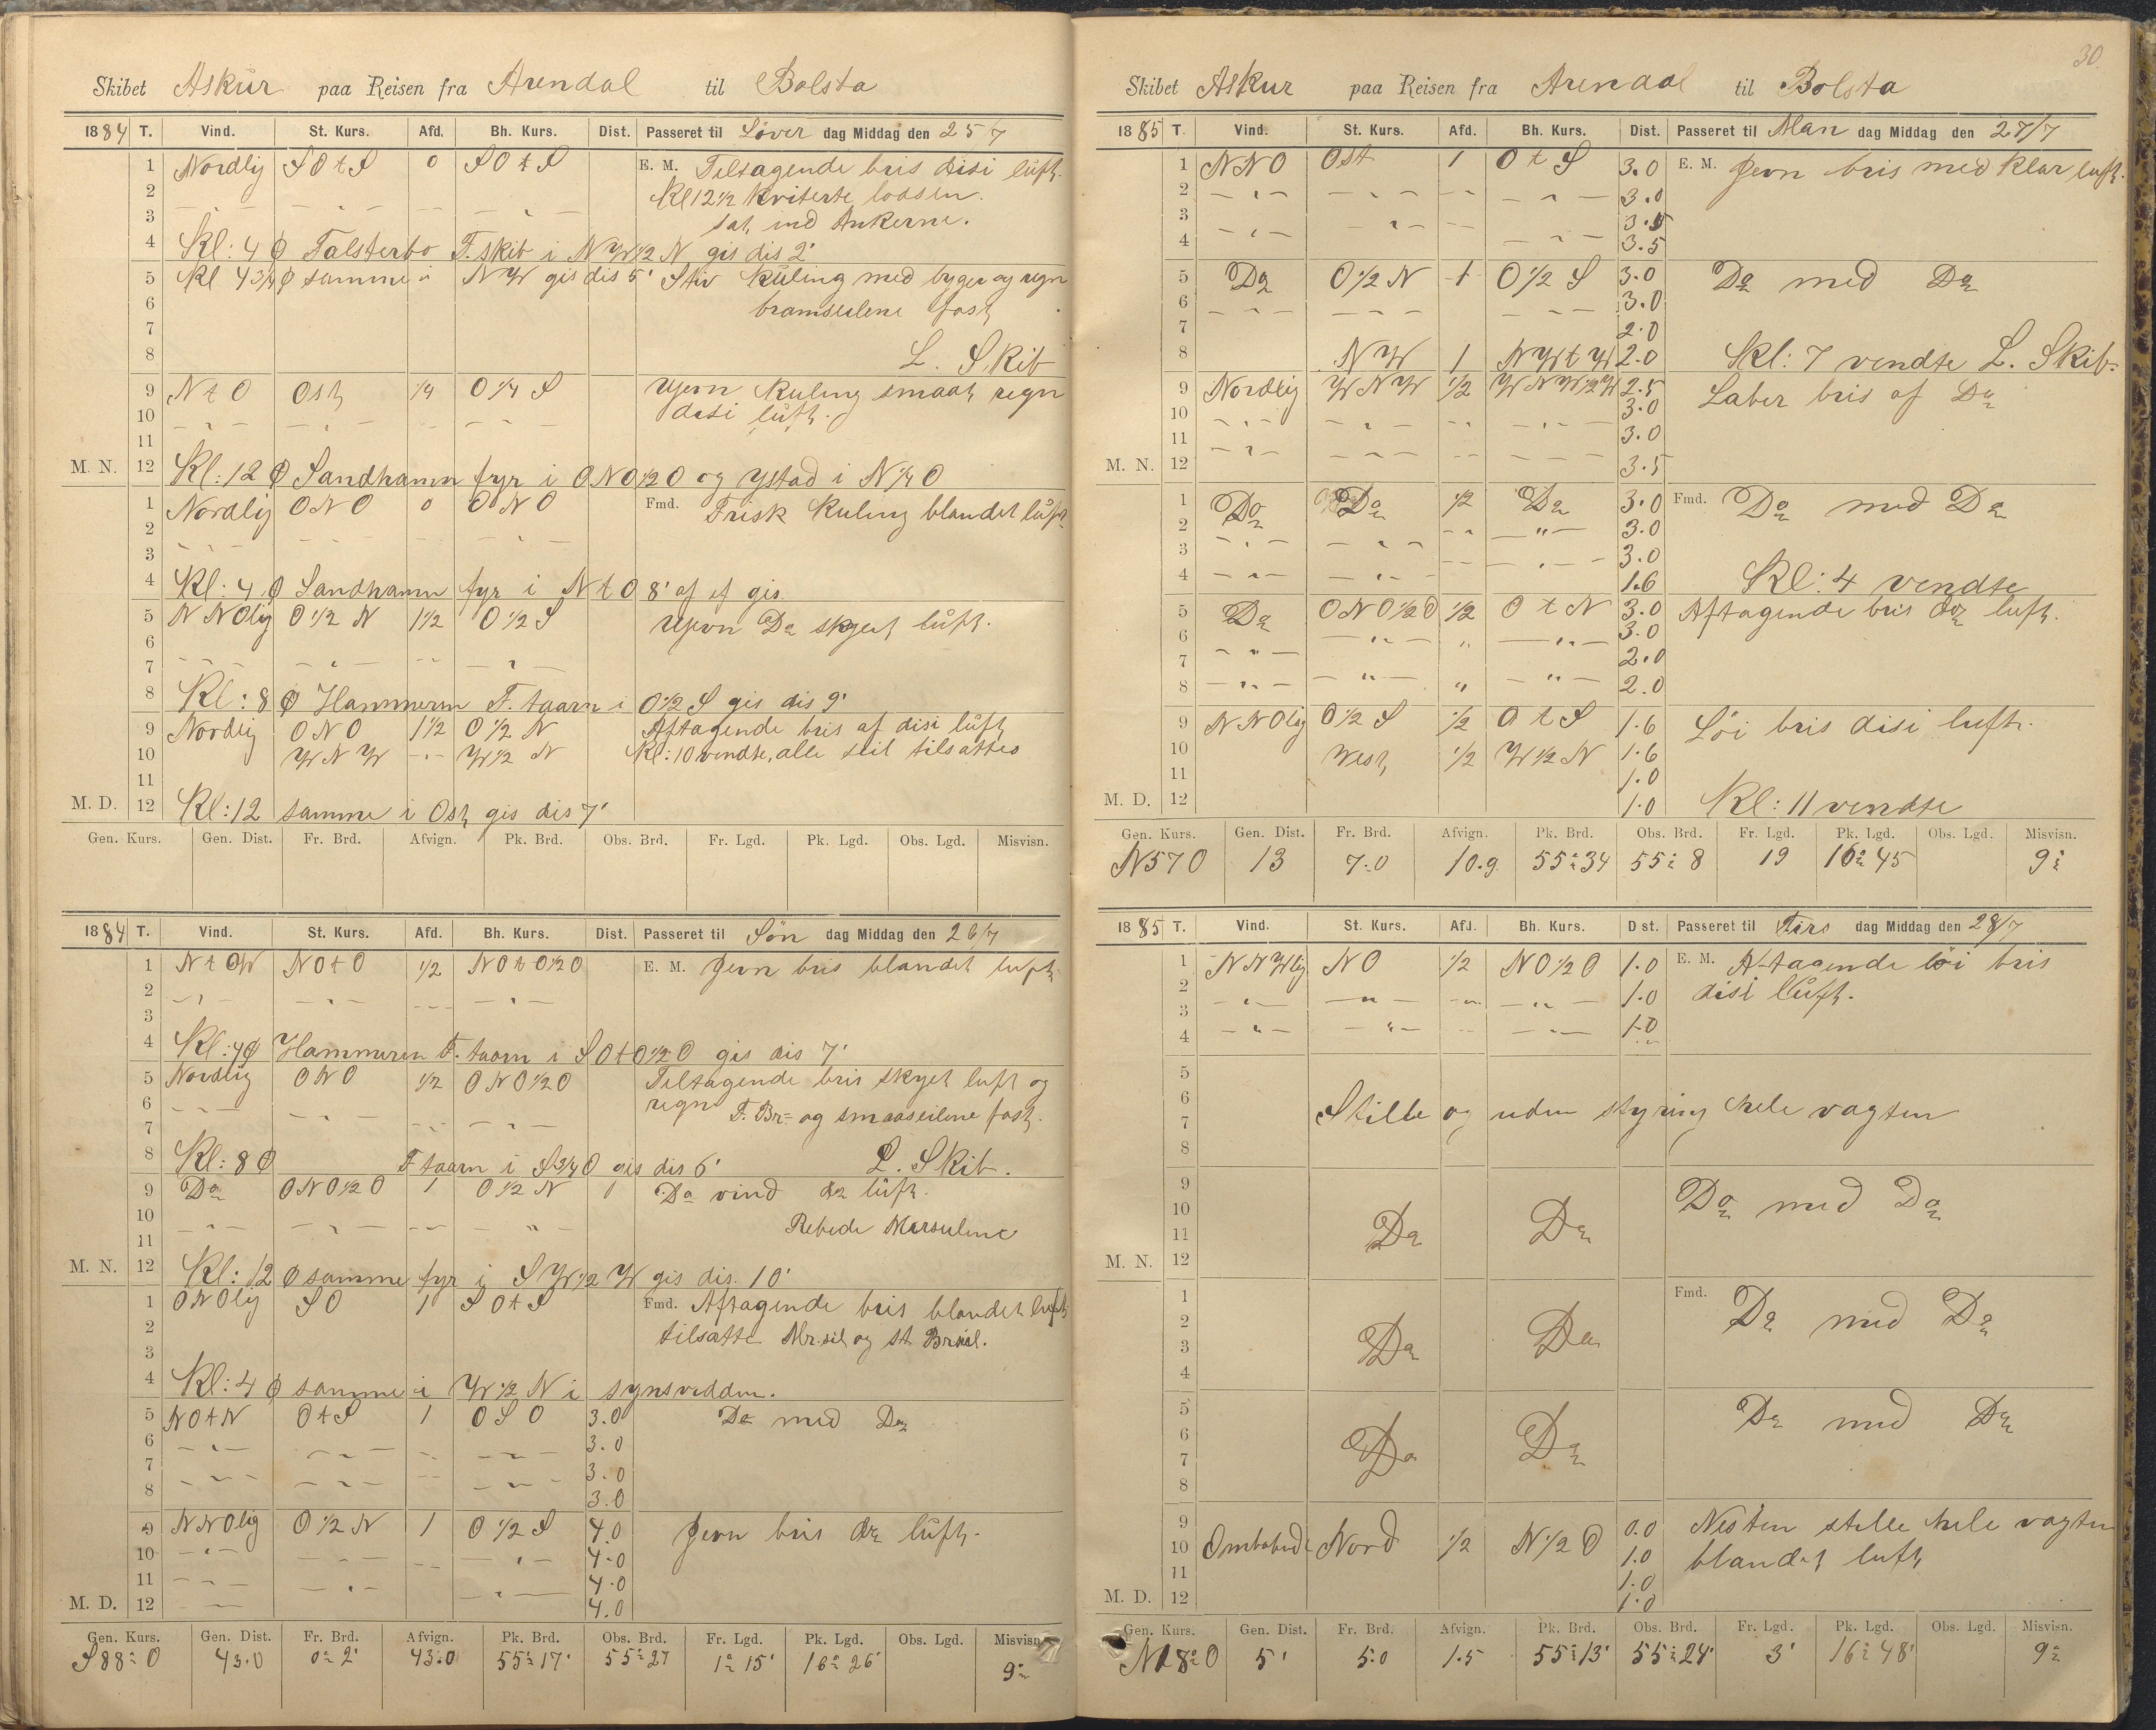 Skibet Askur paa Reisen fra Arendal til Bolsta
1884 T. Vind. St. Kurs. Afd. Bh. Kurs. Dist. Passeret til Löver dag Middag den 25/7
1 Nordlig S O t S 0 S O t S E. M. Tiltagende bris disi luft.
2 Kl 12 1/2 kviterte lodsen.
3 sat ind Ankerne.
4 Kl: 4 Falsterbo F. skib i N W 1/2 N gis dis 2'
5 Kl 4 3/4 samme i N W gis dis 5' Stiv kuling med byger og regn
6 bramseilene fast
7
8 L. Skib
9 N t O Ost 1/4 O 1/4 S kuling smaat regn
10 disi luft.
11
M. N. 12 Kl: 12 Sandhamn fyr i O N O 1/2 O og Ystad i N 1/4 O
1 Nordlig O N O 0 O N O Fmd. Frisk kuling blandet luft
2
3
4 Kl: 4 Sandhamn fyr i N t O 8' af gis.
5 N N Olig O 1/2 N 1 1/2 O 1/2 S Do skyet luft.
6
7
8 Kl: 8 Hammeren F. taarn i O 1/2 S gis dis 9'
9 Nordlig O N O 1 1/2 O 1/2 N Aftagende bris af disi luft
10 W N W W 1/2 N Kl: 10 vendte, alle seil tilsattes
11
M. D. 12 Kl: 12 samme i Ost gis dis 7'
Gen. Kurs. Gen. Dist. Fr. Brd. Afvign. Pk. Brd. Obs. Brd. Fr. Lgd. Pk. Lgd. Obs. Lgd. Misvisn.
1884 T. Vind. St. Kurs. Afd. Bh. Kurs. Dist. Passeret til Sön dag Middag den 26/7
1 N t W N O t O 1/2 N O t O 1/2 O E. M. Jevn bris blandet luft.
2
3
4 Kl: 4 Hammeren F. taarn i S O t O 1/2 O gis dis 7'
5 Nordlig O N O 1/2 O N O 1/2 O Tiltagende bris skyet luft og
6 regn F. Br= og smaaseilene fast.
7
8 Kl: 8 F taarn i S 3/4 O gis dis 6' L. Skib.
9 Do O N O 1/2 O 1 O 1/2 N Do vind do luft.
10 Rebede Merseilene
11
M. N. 12 Kl: 12 samme fyr i S W 1/2 W gis dis. 10'
1 O N Olig S O 1 S O t S Fmd. Aftagende bris blandet luft
2 tilsatte Mr. seil og St Br seil.
3
4 Kl: 4 samme i W 1/2 N i synsvidden.
5 N O t N O t S 1 O S O 3.0 Do med Do
6 3.0
7 3.0
8 3.0
9 N N Olig O 1/2 N 1 O 1/2 S 4.0 Jevn bris do luft.
10 4.0
11 4.0
M. D. 12 4.0
Gen. Kurs. Gen. Dist. Fr. Brd. Afvign. Pk. Brd. Obs. Brd. Fr. Lgd. Pk. Lgd. Obs. Lgd. Misvisn.
S 88° O 43.0 0° 2' 43.0 55° 17' 55° 27 1° 15' 16° 26' 9°
30.
Skibet Askur paa Reisen fra Arendal til Bolsta
1885 T. Vind. St. Kurs. Afd. Bh. Kurs. Dist. Passeret til Man dag Middag den 27/7
1 N N O Ost 1 O t S 3.0 E. M. Jevn bris med klar luft.
2 3.0
3 3.5
4 3.5
5 Do O 1/2 N 1 O 1/2 S 3.0 Do med Do
6 3.0
7 2.0
8 N W 1 N W t W 2.0 Kl: 7 vendte L. Skib.
9 Nordlig W N W 1/2 W N W 1/2 W 2.5 Laber bris af Do
10 3.0
11 3.0
M. N. 12 3.5
1 Do Do 1/2 Do 3.0 Fmd. Do med Do
2 3.0
3 3.0
4 1.6 Kl: 4 vendte
5 Do O N O 1/2 O 1/2 O t N 3.0 Aftagende bris do luft.
6 3.0
7 2.0
8 2.0
9 N N Olig O 1/2 S 1/2 O t S 1.6 Löi bris disi luft.
10 West 1/2 W 1/2 N 1.6
11 1.0
M. D. 12 1.0 Kl: 11 vendte
Gen. Kurs. Gen. Dist. Fr. Brd. Afvign. Pk. Brd. Obs. Brd. Fr. Lgd. Pk. Lgd. Obs. Lgd. Misvisn.
N 57 O 13 7.0 10.9 55° 34 55° 8 19 16° 45 9°
1885 T. Vind. St. Kurs. Afd. Bh. Kurs. Dist. Passeret til Tirs dag Middag den 28/7
1 N N Wlig N O 1/2 N O 1/2 O 1.0 E. M. Aftagende löi bris
2 1.0 disi luft.
3 1.0
4
5
6 Stille og uden styring hele vagten
7
8
9 Do med Do
10 Do Do
11
M. N. 12
1 Fmd. Do med Do
2
3 Do Do
4
5 Do med Do
6 Do Do
7
8
9 0.0 Nesten stille hele vagten
10 Omløbende Nord 1/2 N 1/2 O 1.0 blandet luft
11 1.0
M. D. 12 1.0
Gen. Kurs. Gen. Dist. Fr. Brd. Afvign. Pk. Brd. Obs. Brd. Fr. Lgd. Pk. Lgd. Obs. Lgd. Misvisn.
N 18° O 5' 5.0 1.5 55° 13' 55° 24' 3' 16° 48' 9°